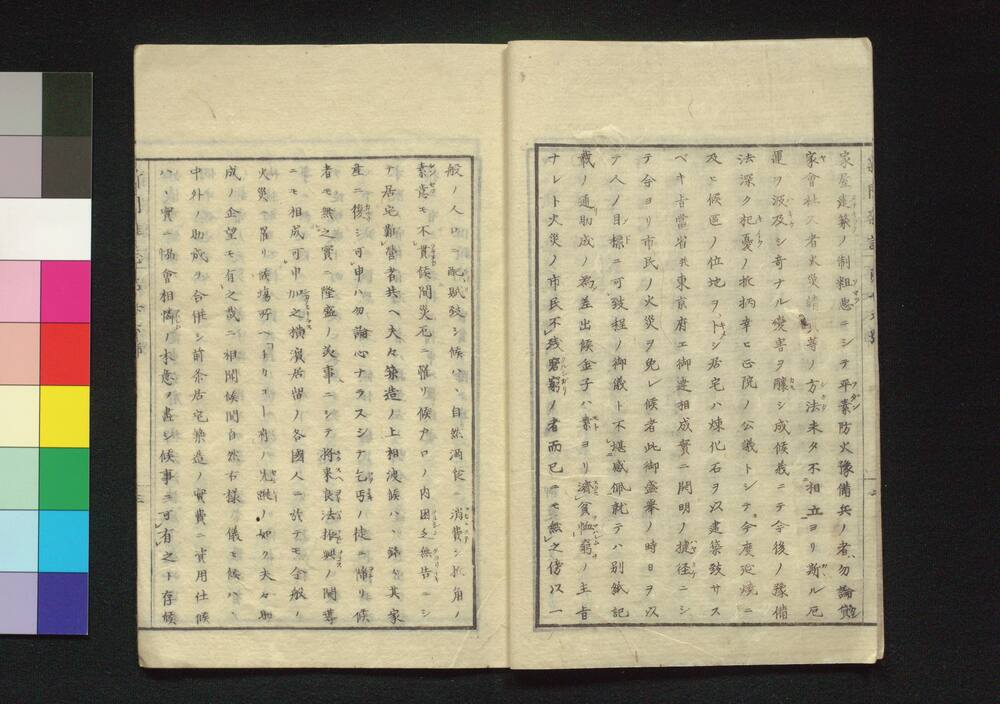 家屋建築ノ制粗悪ニシテ平素防火豫備兵ノ者ハ勿論貸
家會社又者火災請負等ノ方法未タ不相立ヨリ斯ル厄
運ヲ波及シ奇ナル変害ヲ醸シ成候義ニテ今後ノ豫備
法深ク杞憂ノ折柄幸ヒ正院ノ公議トシテ今度延焼ニ
及ヒ候區ノ位地ヲトシ居宅ハ煉化石ヲ以建築致サス
ベキ旨當省共東京府エ御達相成實ニ開明ノ捷径ニシ
テ今ヨリ市民ノ火災ヲ免レ候者此御盛挙ノ時日ヲ以
テ人ノ目標ニ可致程ノ御儀ト不堪感佩就テハ別紙記
載ノ通助成ノ為差出候金子ハ素ヨリ済貧恤窮ノ主旨
ナレト火災ノ市民不残窘窮ノ者而已ニモ無之傍以一
般ノ人口ニ配賦致シ候ハヽ自然酒食ニ消費シ折角ノ
素意モ不貫候間災厄ニ罹リ候戸口ノ内困乏無告ニシ
テ居宅難営者共ヘ夫々築造ノ上相渡候ハヽ銘々其家
産ニ復シ可申ハ勿論心ナラスシテ乞丐ノ徒ニ陥リ候
者モ無之實ニ隆盛ノ美事ニシテ将来良法振興ノ開導
ニモ相成可申加之横濱居留ノ各國人ニ於テモ全般ノ
火災ニ罹リ候場所ヘ
成ノ企望モ有之哉ニ相聞候間自然右様ノ儀モ候ハヽ
中外ノ助成ヲ合併シ前条居宅築造ノ實費ニ資用仕候
ハヽ實ニ協會相憐ノ本意ヲ盡シ候事ニ可有之ト存候